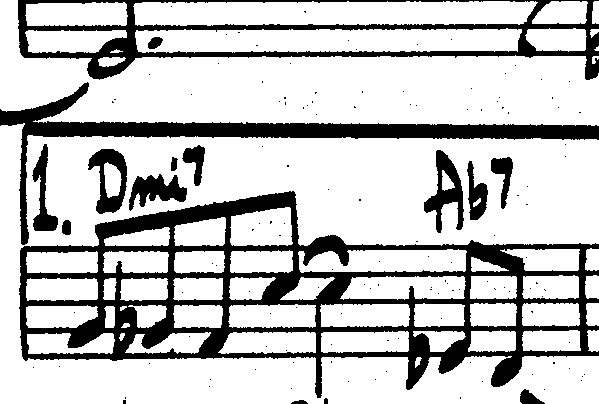 1. Dmi7 Ab7